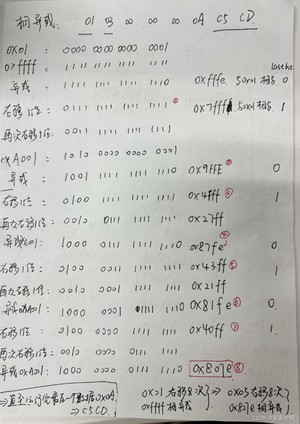 相异或: 01 03 00 00 00 0A C5 CD
0x01: 0000 0000 0000 0001
0xffff: 1111 1111 1111 1111
异或: 1111 1111 1111 1110 0xfffe 0
右移1位: 0111 1111 1111 1111 ① 0x7fff 1
再次右移1位: 0011 1111 1111 1111
0xA001: 1010 0000 0000 0001
异或: 1001 1111 1111 1110 0x9ffE ② 0
右移1位: 0100 1111 1111 1111 0x4fff ③ 1
再次右移1位: 0010 0111 1111 1111 0x27ff
异或A001: 1000 0111 1111 1110 0x87fe ④ 0
右移1位: 0100 0011 1111 1111 0x43ff ⑤ 1
再次右移1位: 0010 0001 1111 1111 0x21ff
异或0xA001: 1000 0001 1111 1110 0x81fe ⑥ 0
右移1位: 0100 0000 1111 1111 0x40ff ⑦ 1
再次右移1位: 0010 0000 0111 1111
异或0xA001: 1000 0000 0111 1110 0x807e ⑧
0x01右移8次 ⇒ 0x03右移8次
0xffff相异或 0x807e相异或
⇒ C5CD